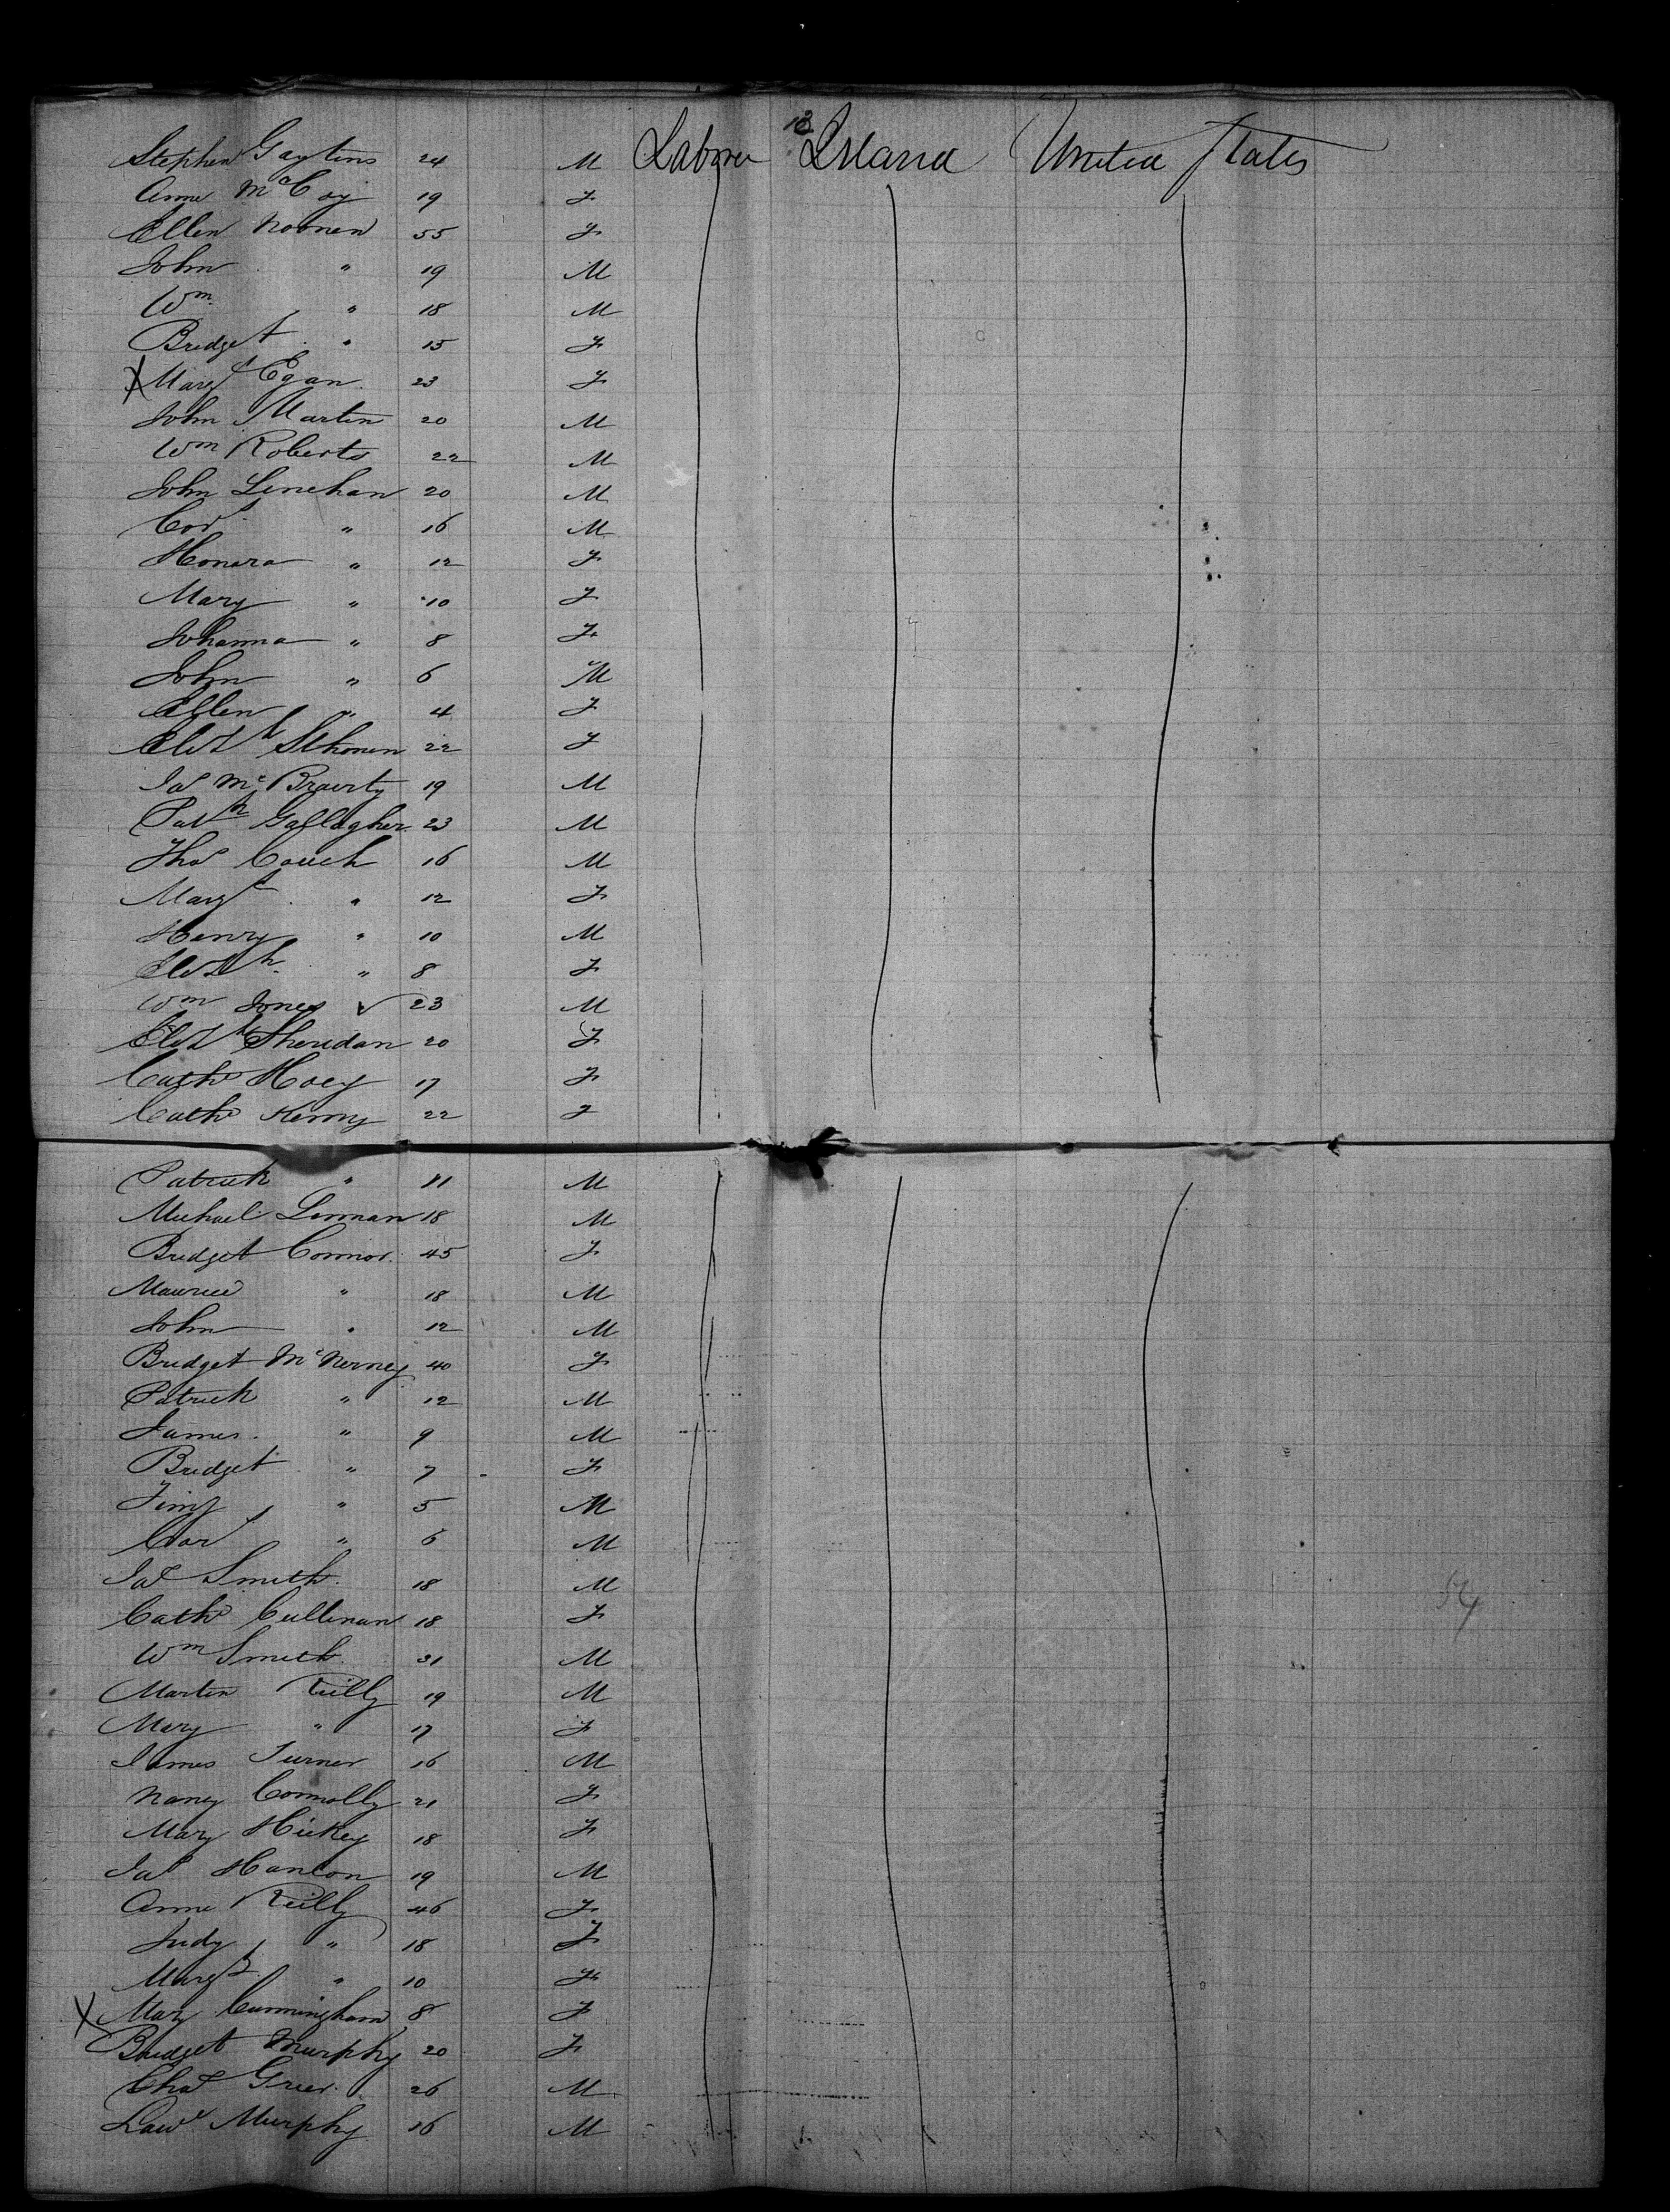 18
Stephen Gaytins 24 M Laborer Ireland United States
Anne McCoy 19 F
Ellen Noonen 55 F
John " 19 M
Wm " 18 M
Bridget " 15 F
X Margt Egan 23 F
John Martin 20 M
Wm Roberts 22 M
John Linehan 20 M
Cors " 16 M
Honora " 12 F
Mary " 10 F
Johanna " 8 F
John " 6 M
Ellen " 4 F
Elizth 22 F
Jas McBraerty 19 M
Patk Gallagher 23 M
Thos Couch 16 M
Margt " 12 F
Henry " 10 M
Elizth " 8 F
Wm Jones ✓ 23 M
Elizth Sheridan 20 F
Cathe Hoey 17 F
Cathe Kenny 22 F
Patrick " 11 M
Michael Lennan 18 M
Bridget Connor 45 F
Maurice " 18 M
John " 12 M
Bridget McNerney 40 F
Patrick " 12 M
James " 9 M
Bridget " 7 F
Timy " 5 M
Cors " 6 M
Jas Smith 18 M
Cathe Cullinan 18 F
Wm Smith 31 M
Martin Reilly 19 M
Mary " 17 F
James Turner 16 M
Nancy Connolly 21 F
Mary Hickey 18 F
Jas Hanlon 19 M
Anne Reilly 46 F
Judy " 18 F
Margt " 10 F
X Mary Cunningham 8 F
Bridget Murphy 20 F
Chas Greer 26 M
Lawe Murphy 16 M
54